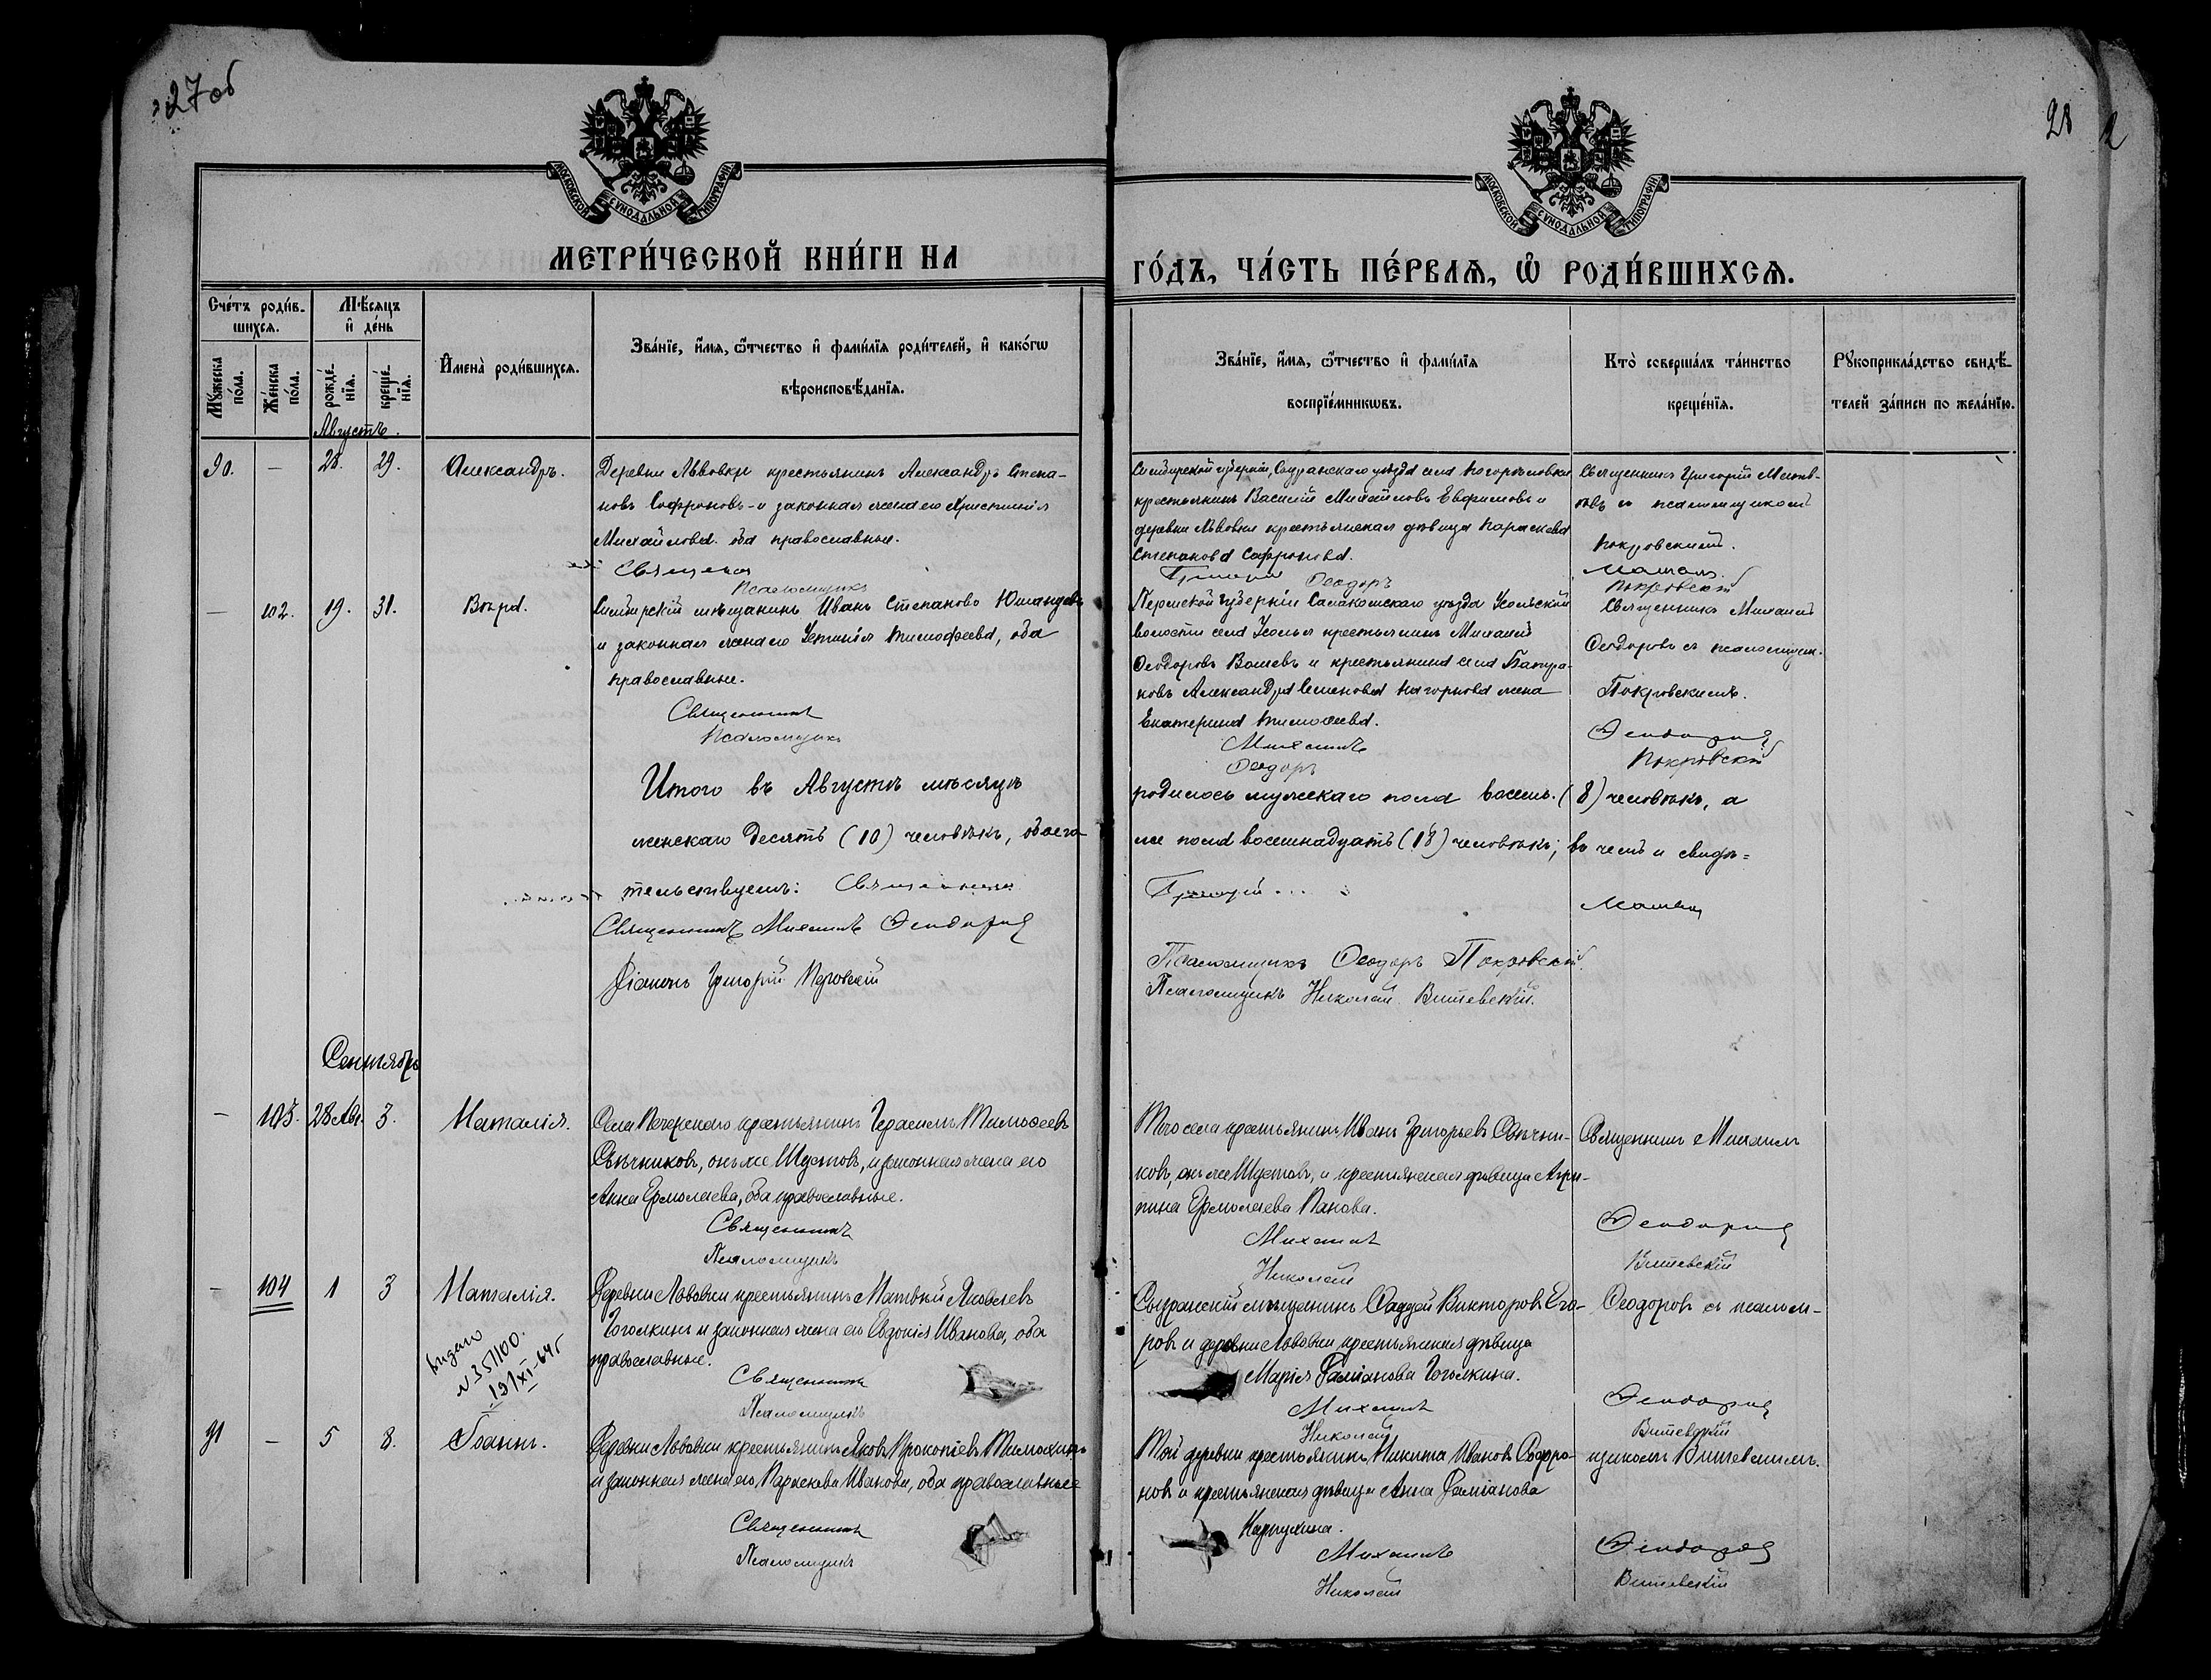 27об
28
2
МОСКОВСКОЙ СѴНОДАЛЬНОЙ ТИПОГРАФІИ
МОСКОВСКОЙ СѴНОДАЛЬНОЙ ТИПОГРАФІИ
МЕТРИ́ЧЕСКОЙ КНИ́ГИ НА
ГО́ДЪ, ЧА́СТЬ ПЕ́РВАѦ, Ѽ РОДИ́ВШИХСѦ.
Сче́тъ роди́в-
шихсѧ.
Мѣ́сѧцъ
и҆ де́нь
Мꙋ́жеска
по́ла.
Же́нска
по́ла.
рожде́-
нїѧ.
креще́-
нїѧ.
И҆мена̀ роди́вшихсѧ.
Зва́нїе, и҆́мѧ, ѻ҆́тчество и҆ фами́лїѧ роди́телей, и҆ како́гѡ
вѣроисповѣ́данїѧ.
Зва́нїе, и҆́мѧ, ѻ҆́тчество и҆ фами́лїѧ
воспрїе́мникѡвъ.
Кто̀ соверша́лъ та́инство
креще́нїѧ.
Рꙋкоприкла́дство свидѣ́-
телей за́писи по жела́нїю.
Августъ.
90. — 28. 29. Александръ.
Деревни Львовки крестьянинъ Александръ Степа-
новъ Софроновъ и законная жена его Христинія
Михайлова. оба православные.
Священ
Псаломщикъ
Симбирской губерніи, Сызранскаго уѣзда села
крестьянинъ Василій Михайловъ Евфимовъ и
деревни Львовки крестьянская дѣвица Параскева
Степанова Софронова.
Григорій
Ѳеодоръ
Священникъ Григорій
съ псаломщикомъ
Покровскимъ.
Покровскій
— 102. 19. 31. Вѣра.
Симбирскій мѣщанинъ Иванъ Степановъ
и законная жена его Устинія Тимофеева, оба
православные.
Священникъ
Псаломщикъ
Пермской губерніи Соликамскаго уѣзда Усольской
волости села Усолья крестьянинъ Михаилъ
Ѳеодоровъ и крестьянина села
Александра Семенова Нагорнова жена
Екатерина Тимоѳеева.
Михаилъ
Ѳеодоръ
Священникъ Михаилъ
Ѳеодоровъ съ псаломщик.
Покровскимъ.
Ѳеодоровъ
Покровскій
Итого въ Августѣ мѣсяцѣ
родилось мужескаго пола восемь (8) человѣкъ, а
женскаго десять (10) человѣкъ, обоего
же пола восемнадцать (18) человѣкъ; въ чемъ и свидѣ=
тельствуемъ: Священникъ
Григорій
Священникъ Михаилъ Ѳеодоровъ
Діаконъ Григорій
Псаломщикъ Ѳеодоръ Покровскій.
Псаломщикъ Николай Витевскій.
Сентябрь
— 103. 28 Авг. 3. Наталія.
Села Печерскаго крестьянинъ Герасимъ Тимоѳеевъ
Свѣчниковъ, онъ же Шустовъ, и законная жена его
Анна Ермолаева, оба православные.
Священникъ
Псаломщикъ
Того села крестьянинъ Иванъ Григорьевъ Свѣчни-
ковъ, онъ же Шустовъ, и крестьянская дѣвица Агри-
пина Ермолаева Панова.
Михаилъ
Николай
Священникъ Михаилъ
Ѳеодоровъ
Витевскій
— 104 1 3 Наталія.
выдано
N 351100.
19/XI-64г
Деревни Львовки крестьянинъ Матвѣй Яковлевъ
Гоголкинъ и законная жена его Евдокія Иванова, оба
православные.
Священникъ
Псаломщикъ
Сызранскій мѣщанинъ Ѳаддей Викторовъ Его-
ровъ и деревни Львовки крестьянская дѣвица
Марія Даміанова Гоголкина.
Михаилъ
Николай
Ѳеодоровъ съ псалом-
Ѳеодоровъ
Витевскій
91 — 5 8. Іоаннъ.
Деревни Львовки крестьянинъ Яковъ Прокопіевъ Тимохинъ
и законная жена его Параскева Иванова, оба православные
Священникъ
Псаломщикъ
Той деревни крестьянинъ Никита Ивановъ Софро-
новъ и крестьянская дѣвица Анна Даміанова
Карпухина.
Михаилъ
Николай
щикомъ Витевскимъ.
Ѳеодоровъ
Витевскій